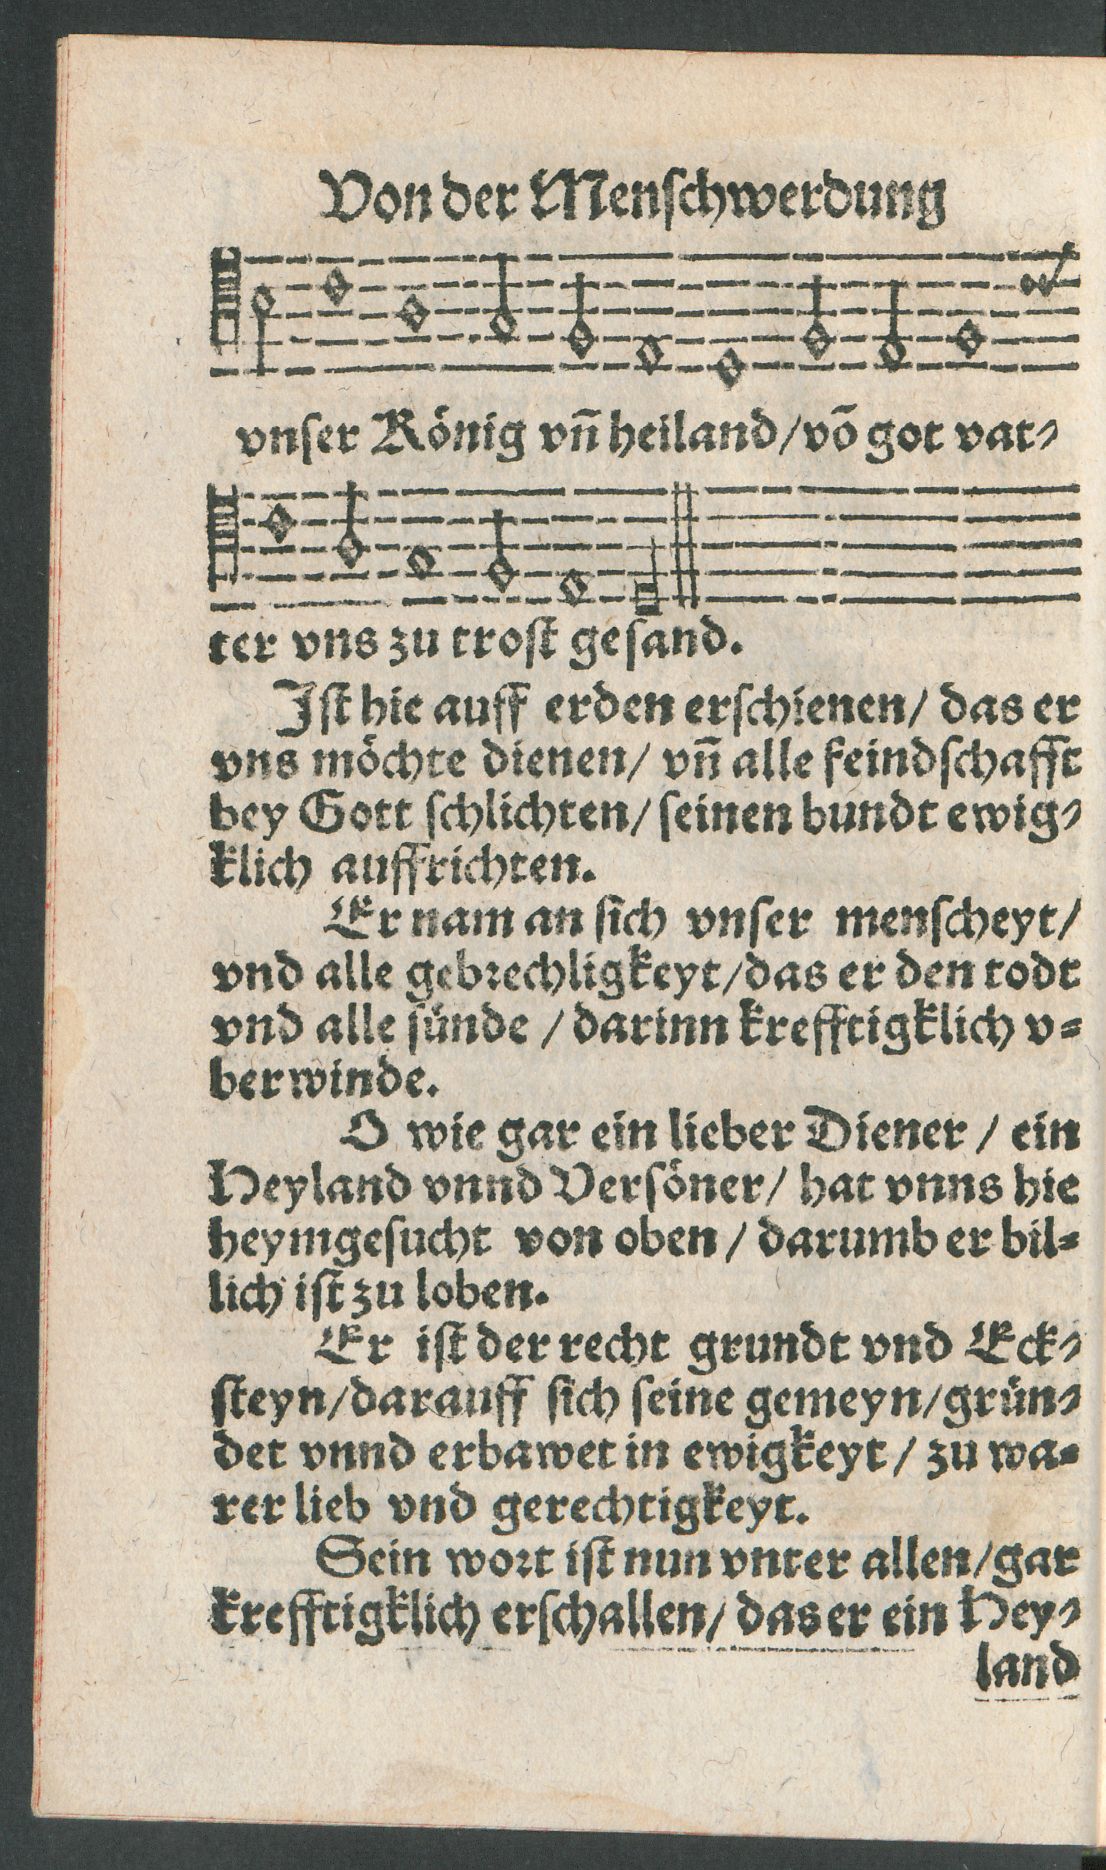 Von der Menschwerdung
vnser König vñ heiland/võ got vat⸗
ter vns zu trost gesand.
Ist hie auff erden erschienen/ das er
vns möchte dienen/ vñ alle feindschafft
bey Gott schlichten/ seinen bundt ewig⸗
klich auffrichten.
Er nam an sich vnser menscheyt/
vnd alle gebrechligkeyt/das er den todt
vnd alle sünde / darinn krefftigklich v⸗
berwinde.
O wie gar ein lieber Diener / ein
Heyland vnnd Versöner/ hat vnns hie
heymgesucht von oben / darumb er bil⸗
lich ist zu loben.
Er ist der recht grundt vnd Eck⸗
steyn/darauff sich seine gemeyn/grün⸗
det vnnd erbawet in ewigkeyt / zu wa⸗
rer lieb vnd gerechtigkeyt.
Sein wort ist nun vnter allen/gar
krefftigklich erschallen/ das er ein Hey⸗
land